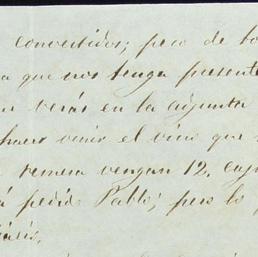 convertidos; pero de to
a que nos tenga presente
verás en la adjunta
hacer venir el vino que
remesa vengan 12. caj
á pedido Pablo; pero lo